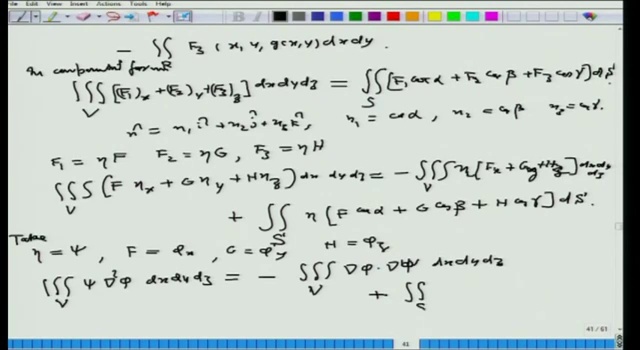 Edit View Insert Actions Tools Help
- ∬_R F₃(x, y, g(x,y)) dx dy.
In component form
∭_V [(F₁)_x + (F₂)_y + (F₃)_z] dx dy dz = ∬_S [F₁ cos α + F₂ cos β + F₃ cos γ] dS.
n̂ = n₁ î + n₂ ĵ + n₃ k̂, n₁ = cos α, n₂ = cos β n₃ = cos γ.
F₁ = ηF F₂ = ηG, F₃ = ηH
∭_V (F η_x + G η_y + H η_z) dx dy dz = - ∭_V η [F_x + G_y + H_z] dx dy dz
+ ∬_S η [F cos α + G cos β + H cos γ] dS.
Take
η = ψ, F = φ_x, G = φ_y H = φ_z
∭_V ψ ∇²φ dx dy dz = - ∭_V ∇φ · ∇ψ dx dy dz
+ ∬_S
41 / 61
41